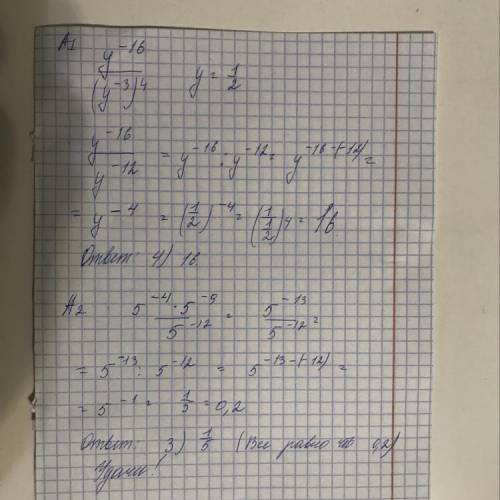 A1
y⁻¹⁶ / (y⁻³)⁴ y = 1/2
y⁻¹⁶ / y⁻¹² = y⁻¹⁶ : y⁻¹² = y⁻¹⁶⁻⁽⁻¹²⁾ =
= y⁻⁴ = (1/2)⁻⁴ = 1/(1/2)⁴ = 16
Ответ: 4) 16
A2 5⁻⁴ · 5⁻⁹ / 5⁻¹² = 5⁻¹³ / 5⁻¹² =
= 5⁻¹³ : 5⁻¹² = 5⁻¹³⁻⁽⁻¹²⁾ =
= 5⁻¹ = 1/5 = 0,2
Ответ: 3) 1/5 (Всё равно что 0,2)
Удачи!